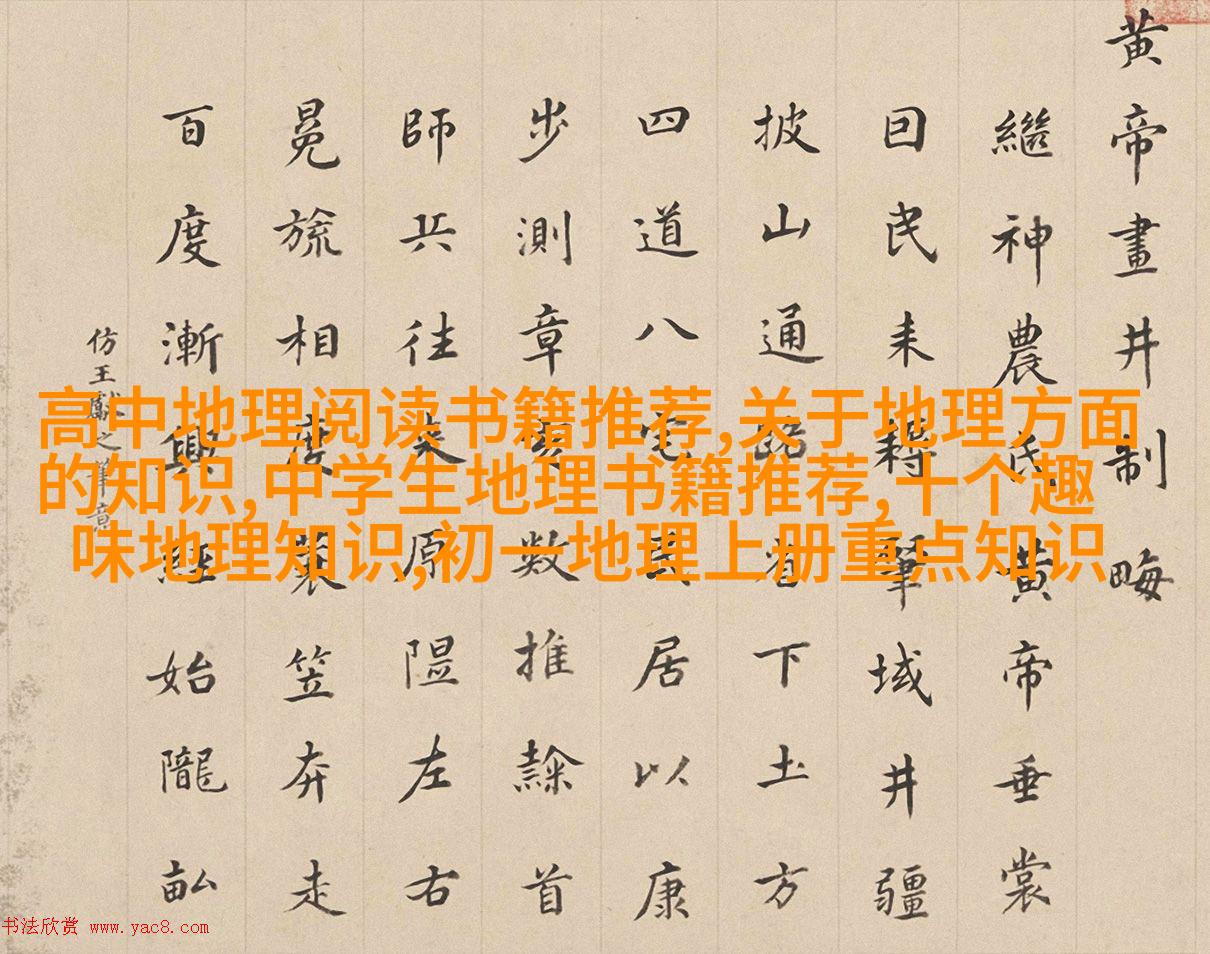 黄帝畫井制畮
繼神農氏黄帝垂裳
囙民耒耨肇域井疆
披山通路省下土方
四道八宅居以康
步測章亥数推隸首
師兵往来原隰左右
冕旒相度蓑笠奔走
百度漸興經始隴畝
仿王獻之筆意
高中地理阅读书籍推荐,关于地理方面
的知识,中学生地理书籍推荐,十个趣
味地理知识,初一地理上册重点知识
书法欣赏 www.yac8.com